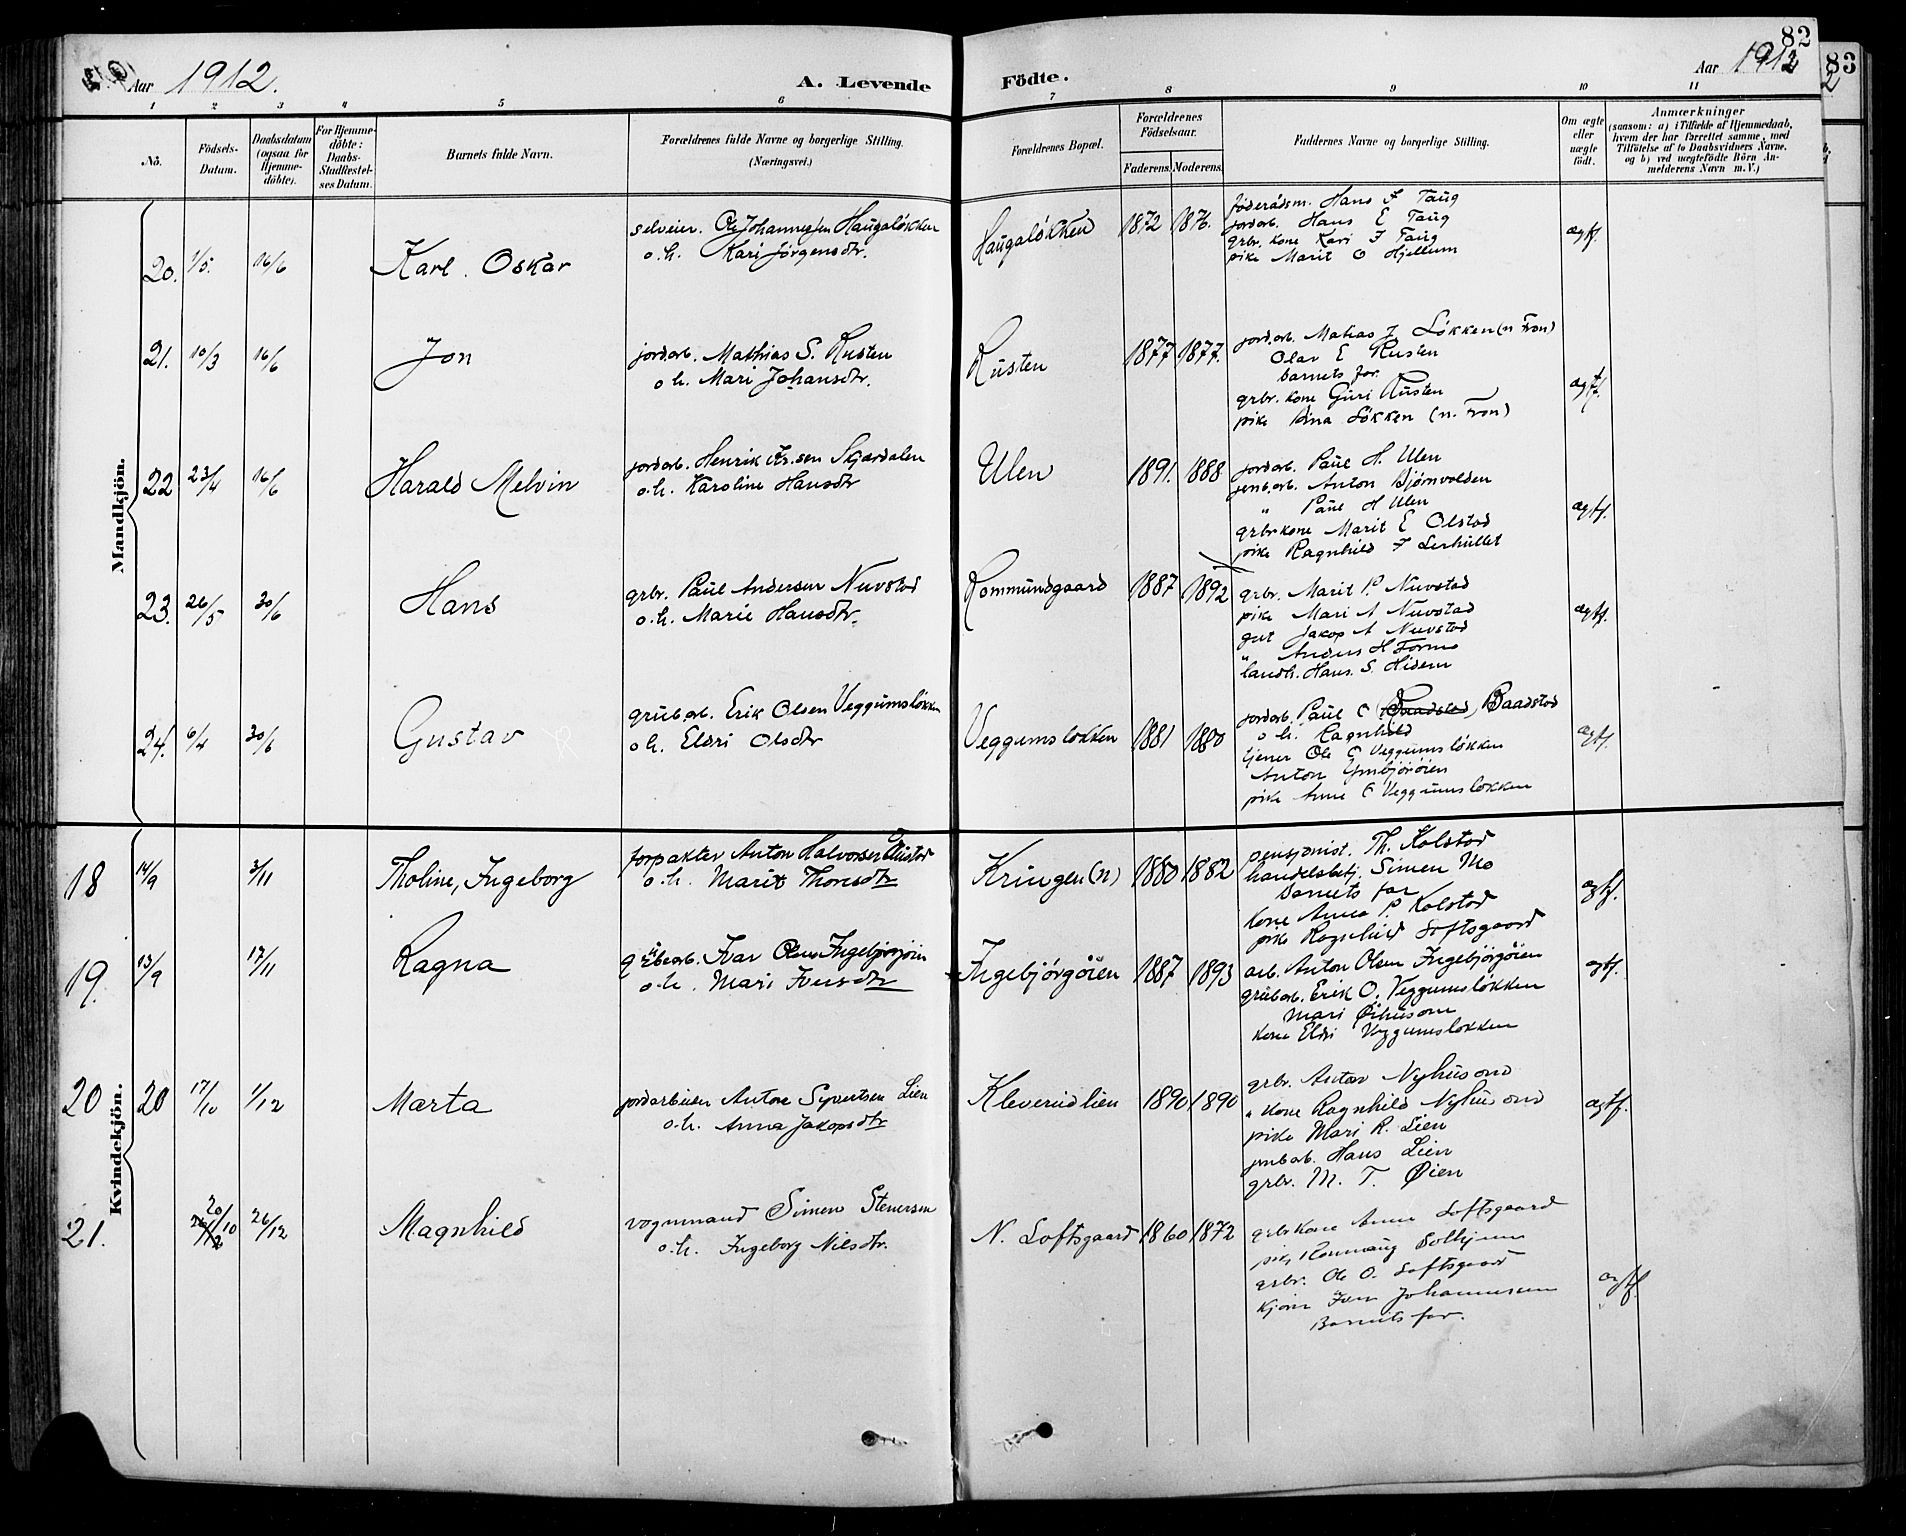 82
83
Aar 1912.
A. Levende
Födte.
Aar 1912
2
1 2 3 4 5 6 7 8 9 10 11
No.
Födsels-Datum.
Daabsdatum (ogsaa for Hjemme-döbte).
For Hjemme-döbte: Daabs-Stadfæstel-ses Datum.
Barnets fulde Navn.
Forældrenes fulde Navne og borgerlige Stilling.
(Næringsvei.)
Forældrenes Bopæl.
Forældrenes Födselsaar.
Faderens. Moderens.
Faddernes Navne og borgerlige Stilling.
Om ægte eller uægte födt.
Anmærkninger
(saasom: a) i Tilfælde af Hjemmedaab, hvem der har forrettet samme, med Tilföielse af to Daabsvidners Navne, og b) ved uægtefödte Börn An-melderens Navn m.V.)
Mandkjön.
20. 1/5. 16/6 Karl Oskar
selveier. Ole Johannessen Haugaløkken
o.h. Kari Jørgensdtr.
Haugaløkken 1872 1876.
føderådsm. Hans F Taug
jordarb. Hans E Taug
grbr. kone Kari F Taug
pike Marit O Hjellum
ægtf.
21. 10/3 16/6 Jon
jordarb. Mathias S. Rusten
o.h. Mari Johansdtr.
Rusten 1877 1877.
jordarb. Matias J Løkken (n Fron)
Olav E Rusten
barnets far.
grbr. kone Guri Rusten
pike Dina Løkken (n. Fron)
ægtf.
22 23/4 16/6 Harald Melvin
jordarb. Henrik Kr.sen Skjærdalen
o.h. Karoline Hansdtr
Ulen 1891. 1888
jordarb. Paul H. Ulen
jernb.arb. Anton Bjørnvolden
" Paul H Ulen
grbrkone Marit E Olstad
pike Ragnhild F Lerhullet
ægtf.
23. 26/5 30/6 Hans
grbr. Paul Andersen Nuvstad
o.h. Marie Hansdtr.
Rommundgaard 1887 1892
grbr. Marit P. Nuvstad
pike Mari A Nuvstad
gut Jakop A Nuvstad
" Anders H Formo
landh. Hans. S. Hidem
ægtf.
24. 6/4 30/6 Gustav
grubarb. Erik Olsen Veggumsløkken
o.h. Eldri Olsdtr
Veggumsløkken 1881 1880
jordarb. Paul O Baadstad
o h. Ragnhild
tjener Ole O Veggumsløkken
Anton
pike Anne O Veggumsløkken
ægtf.
Kvindekjön.
18 14/9 3/11 Tholine, Ingeborg
forpakter Anton Halvorsen
o.h. Marit Thoresdtr
Kringen (n) 1880 1882
pensjonist. Th. Kolstad
handelsbetj. Simen Mo
barnets far
kone Anna P. Kolstad
pike Ragnhild Loftsgaard
ægtf.
19. 13/9 17/11 Ragna
grubearb. Ivar Olsen Ingebjørgøien
o.h. Mari Iversdtr
Ingebjørgøien 1887 1893
arb. Anton Olsen Ingebjørgøien
grubarb. Erik O. Veggumsløkken
Mari Øihusom
kone Eldri Veggumsløkken
ægtf.
20 20 17/10 1/12 Marta
jordarbeider Anton Syvertsen Lien
o.h. Anna Jakopsdtr
Kleverudlien 1890 1890
grbr. Anton Nyhusom
" kone Ragnhild Nyhusom
pike Mari R. Lien
jernb.arb. Hans Lien
grbr. M. T. Øien
ægtf.
21. 20/10 26/12 Magnhild
vognmand Simen Stenersen
o.h. Ingeborg Nilsdtr.
N. Loftsgaard 1860 1872
grbrkone Anne Loftsgaard
pike Rønnaug Solhjem
grbr. Ole O. Loftsgaard
Johannessen
Barnets far.
ægtf.